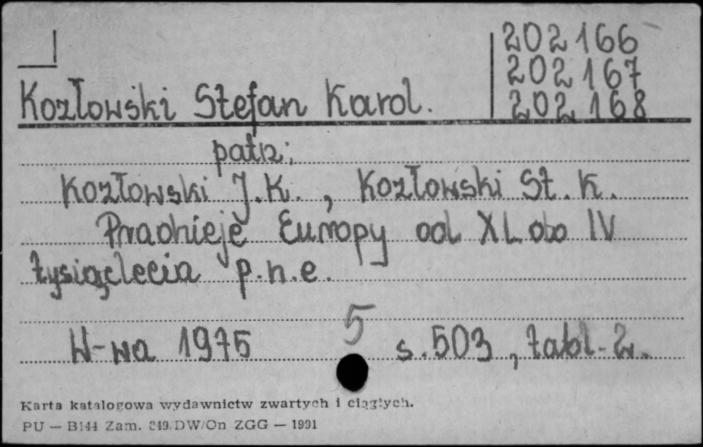 202166
202167
Kozłowski Stefan Karol. 202168
patrz:
Kozłowski J.K., Kozłowski St. K.
Pradzieje Europy od XL do IV
tysiąclecia p.n.e.
5
W-wa 1975 s. 503, tabl. 2.
Karta katalogowa wydawnictw zwartych i ciągłych.
PU — B144 Zam. 249.DW/On ZGG — 1991